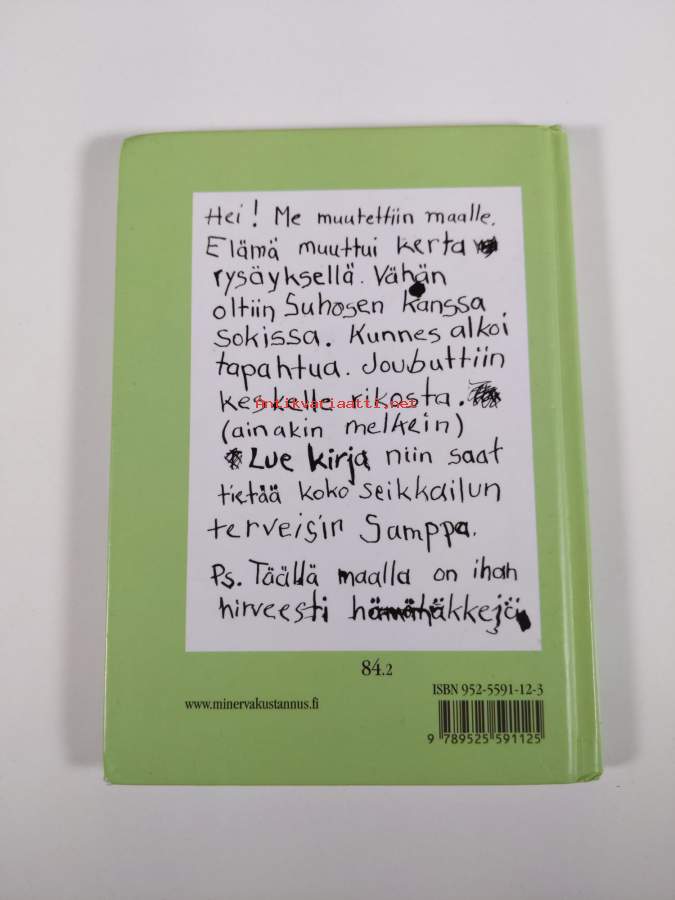 Hei! Me muutettiin maalle.
Elämä muuttui kerta
rysäyksellä. Vähän
oltiin Suhosen kanssa
sokissa. Kunnes alkoi
tapahtua. Jouduttiin
keskelle rikosta.
Antikvariaatti.net
(ainakin melkein)
Lue kirja niin saat
tietää koko seikkailun
terveisin Samppa.
Ps. Täällä maalla on ihan
hirveesti hämähäkkejä
84.2
ISBN 952-5591-12-3
www.minervakustannus.fi
9 789525 591125